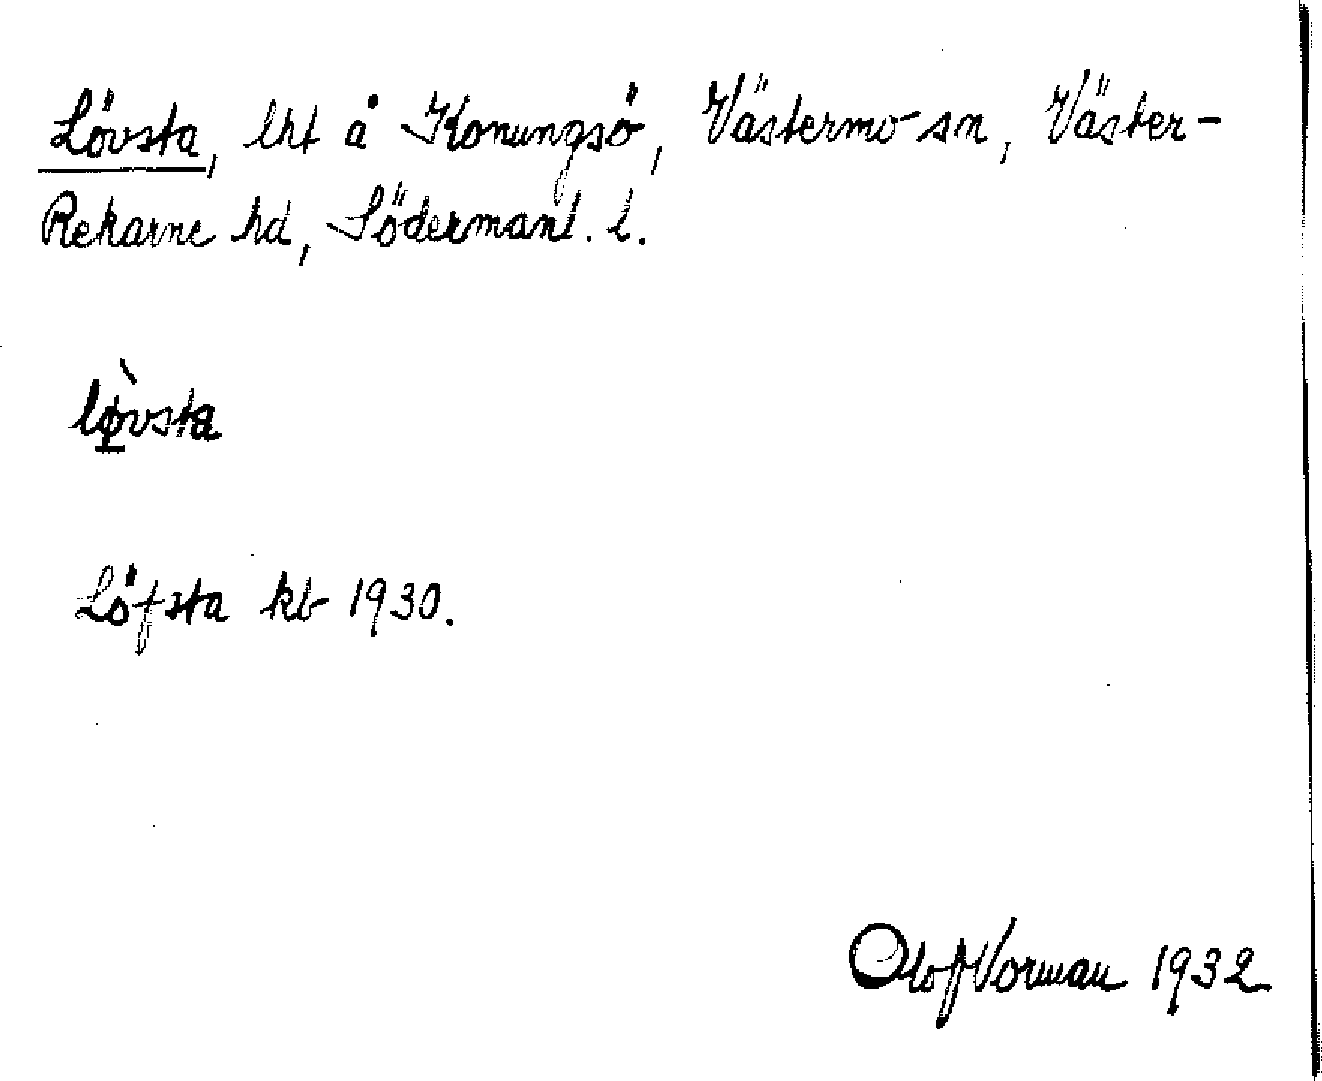 Lövsta, lht å Konungsö, Västermo sn, Väster-
Rekarne hd, Södermanl. l.
lø̱̀vsta
Löfsta kb 1930.
Olof Norman 1932